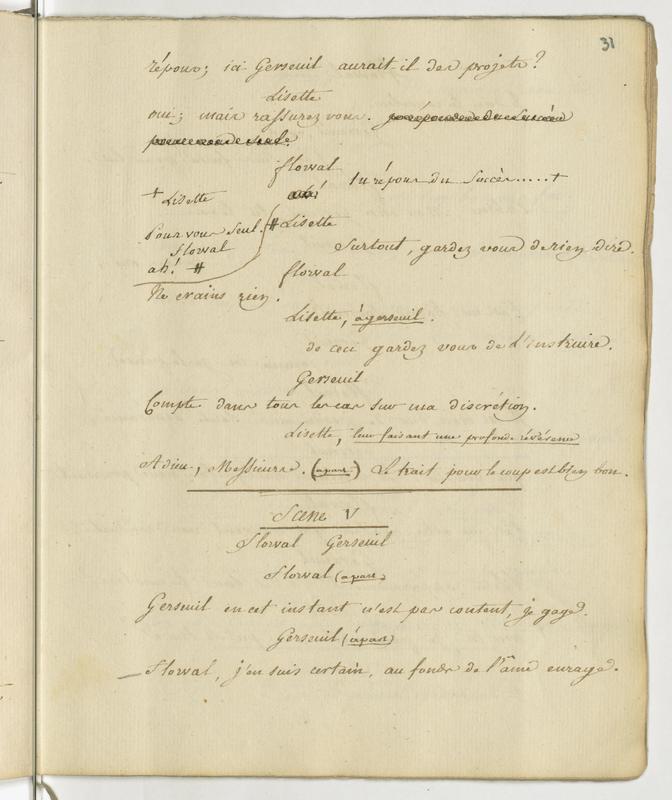 31
répons; ici Gerseuil aurait-il des projets?
Lisette
oui; mais rassurez vous.
florval
Tu répons du succès.....+
ah!
+ Lisette
Pour vous seul.
florval
ah! #
# Lisette
Surtout, gardez vous de rien dire.
florval
Ne crains rien.
Lisette, à gerseuil.
de ceci gardez vous de l'instruire.
Gerseuil
Compte dans tous les cas sur ma discrétion.
Lisette, leur faisant une profonde révérence
Adieu, Messieurs. (apart) Le trait pour le coup est bien bon.
Scene V
Florval Gerseuil
Florval (apart)
Gerseuil en cet instant n'est pas content, je gage.
Gerseuil (àpart)
Florval, j'en suis certain, au fonds de l'âme enrage.